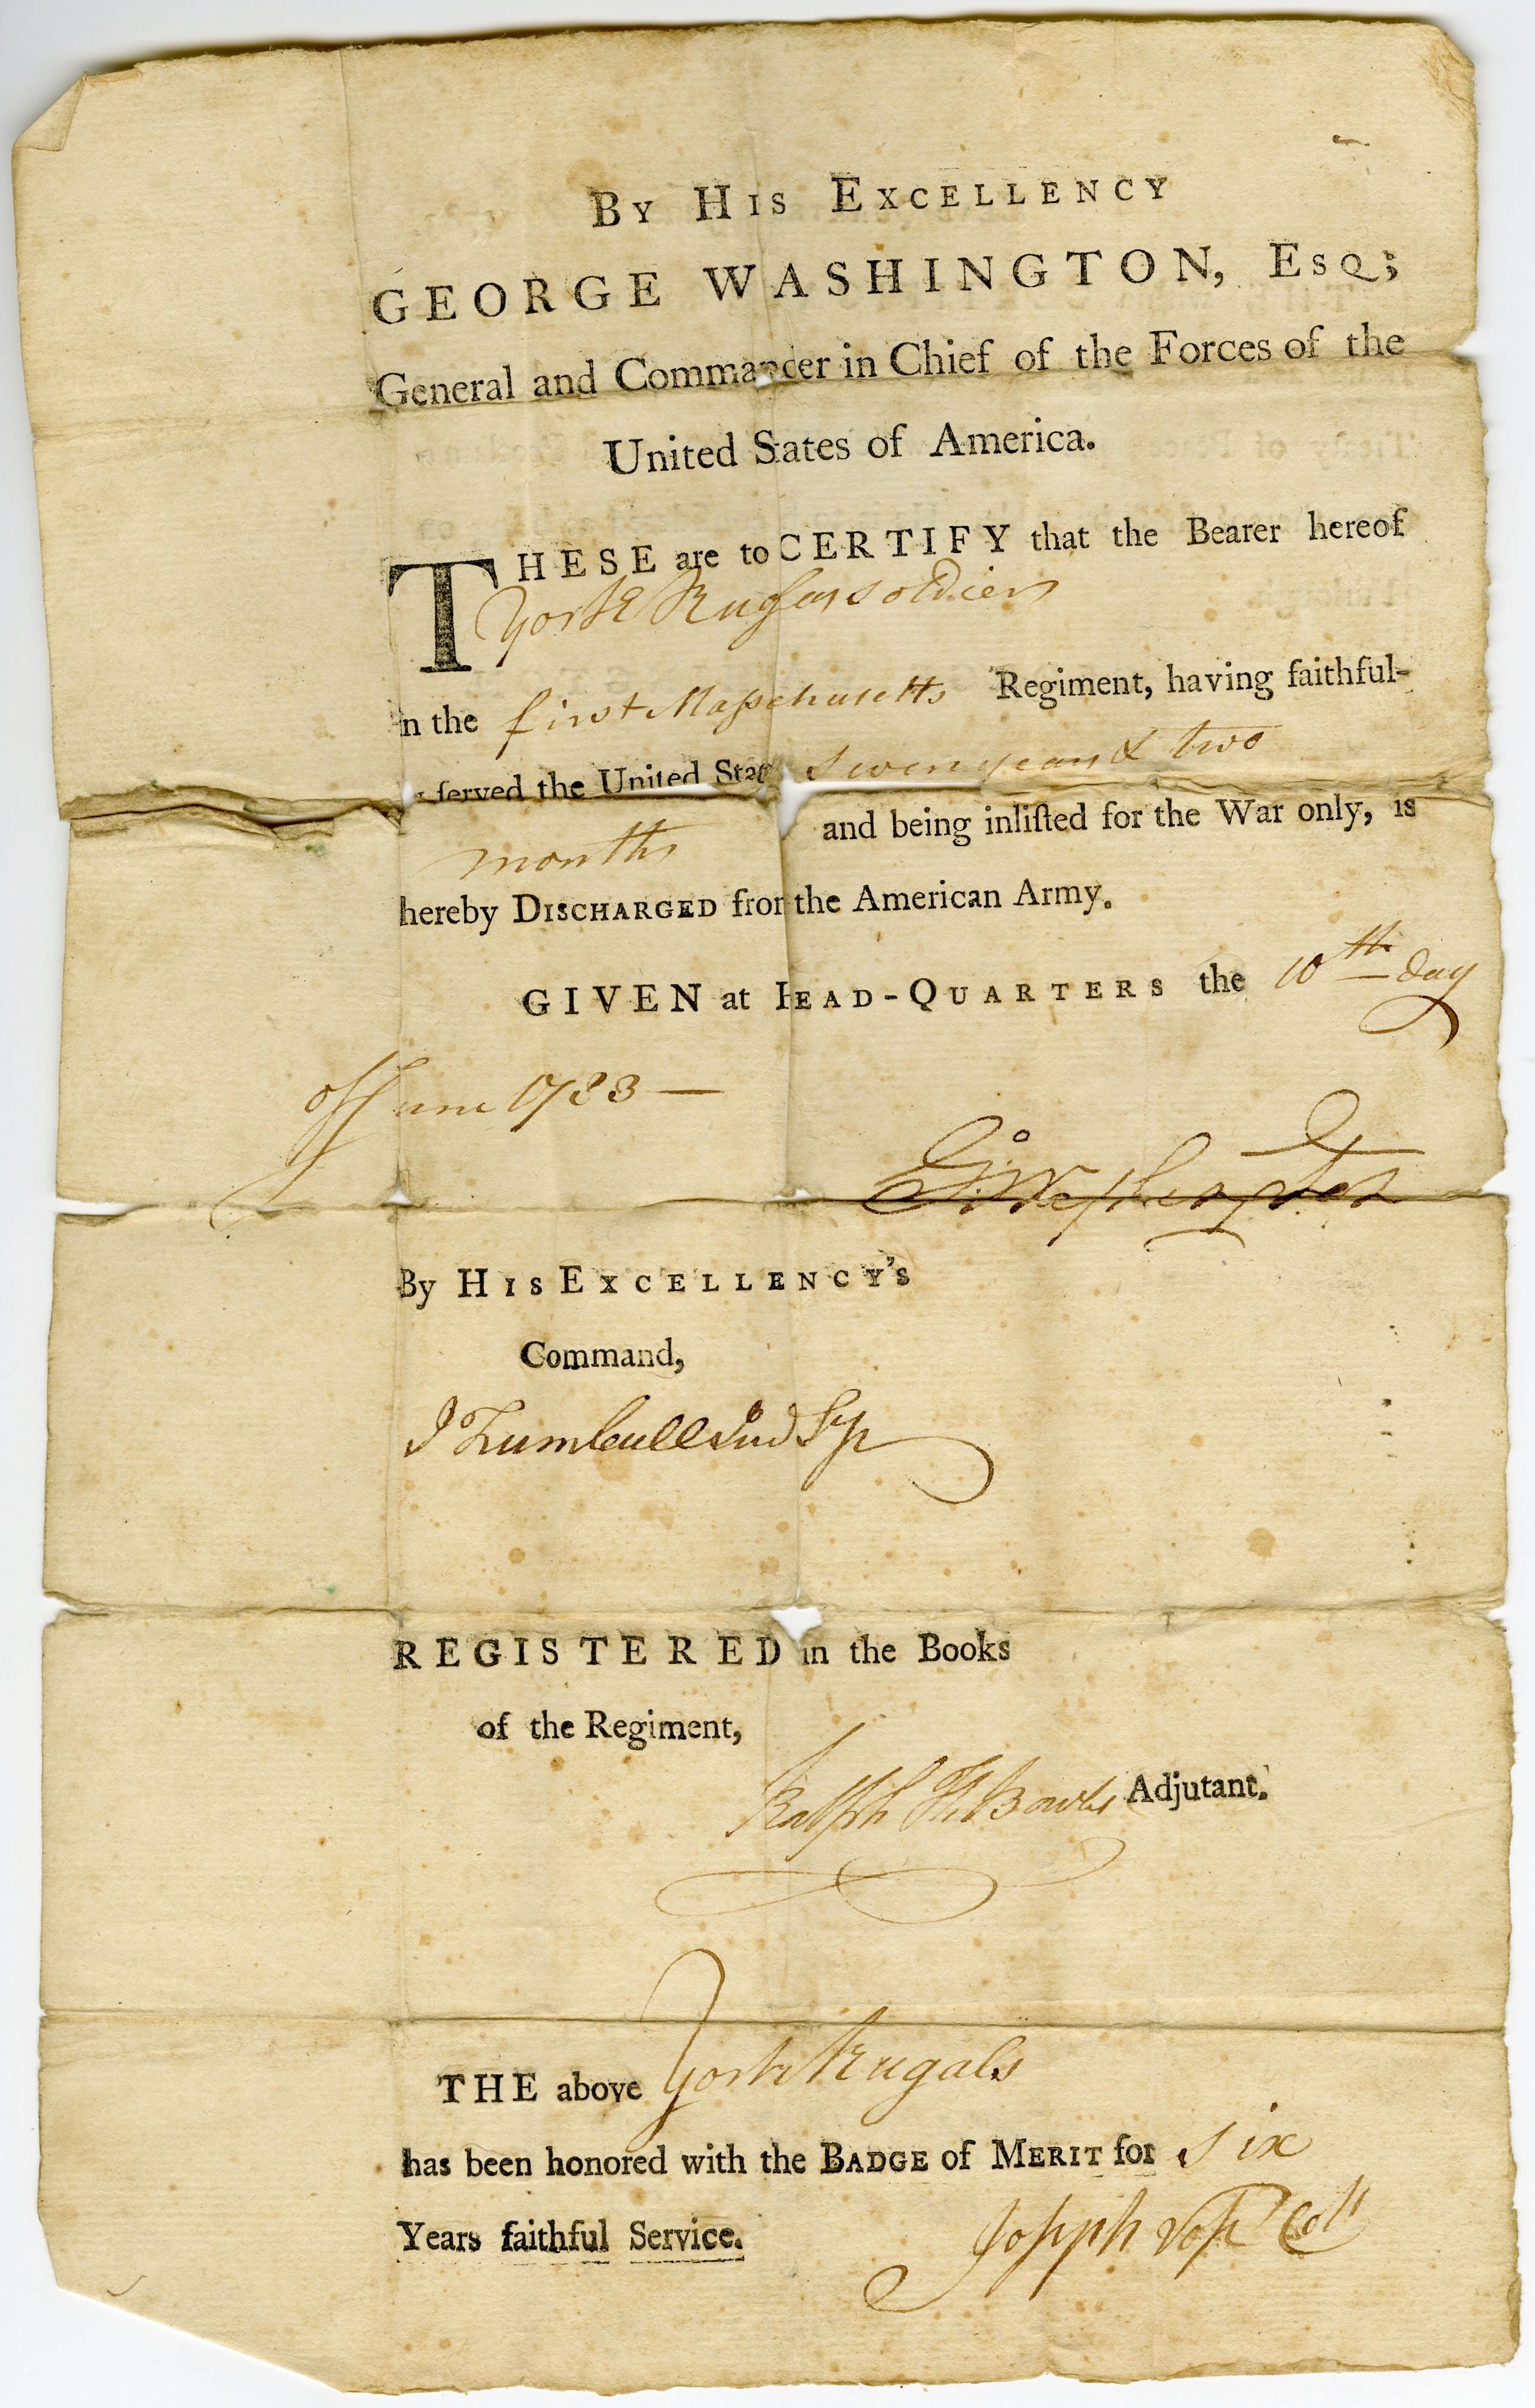 BY HIS EXCELLENCY
GEORGE WASHINGTON, ESQ;
General and Commander in Chief of the Forces of the
United States of America.
THESE are to CERTIFY that the Bearer hereof
York Rugles soldier
in the first Massachusetts Regiment, having faithful-
ly ſerved the United Stat seven years & two
months and being inliſted for the War only, is
hereby DISCHARGED from the American Army.
GIVEN at HEAD-QUARTERS the 10th day
of June 1783 —
Go: Washington
By HIS EXCELLENCY'S
Command,
J Trumbull Jun Sy
REGISTERED in the Books
of the Regiment,
Ralph H Bowles Adjutant.
THE above York Rugals
has been honored with the BADGE of MERIT for six
Years faithful Service.
Joseph Vose Coll